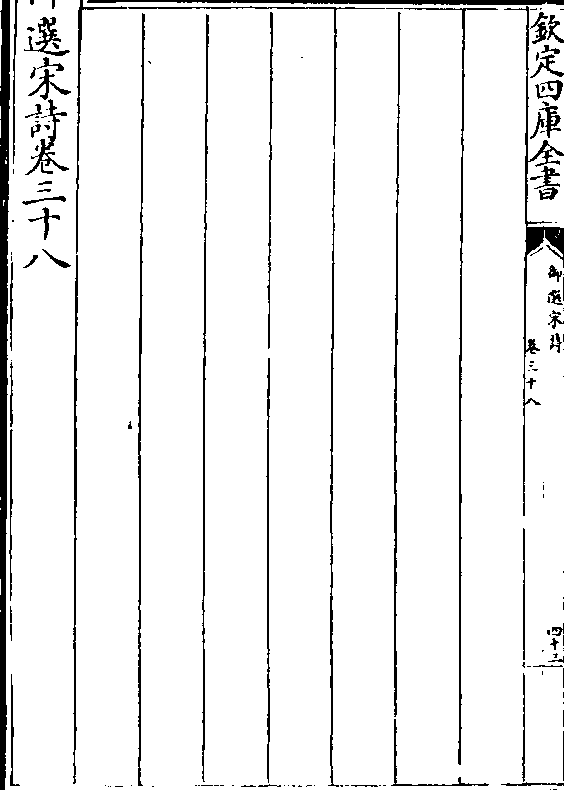 欽定四庫全書
御選宋詩
卷三十八
四十三
選宋詩卷三十八